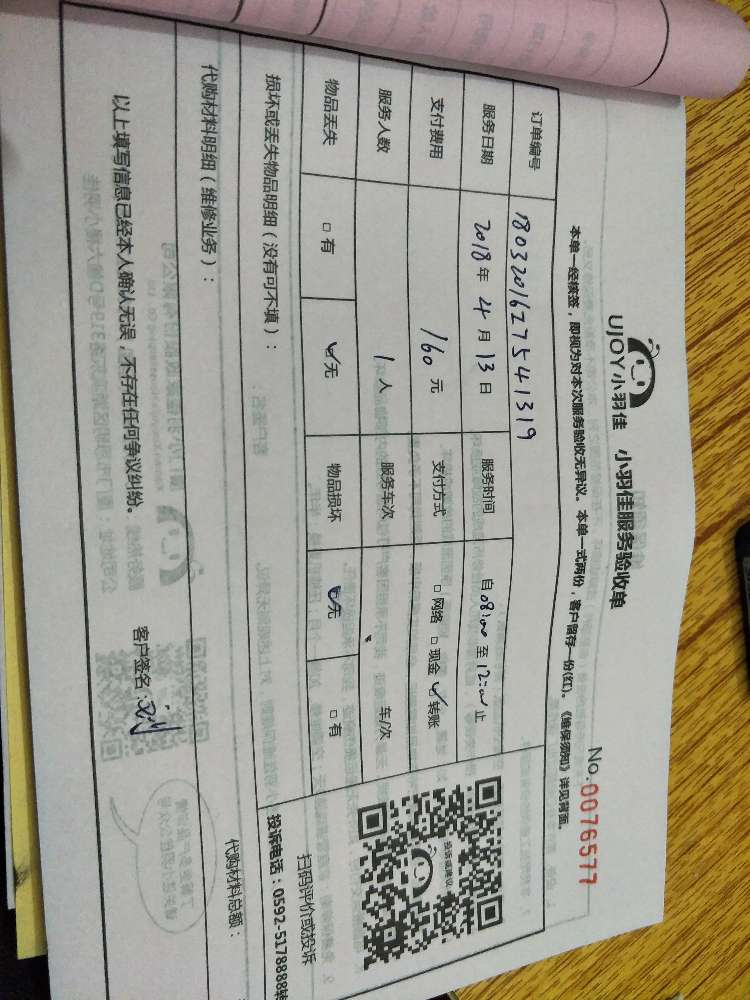 UJOY小羽佳 小羽佳服务验收单
No.0076577
本单一经核签，即视为对本次服务验收无异议。本单一式两份，客户留存一份(红)。《维保须知》详见背面。
订单编号 180320162754 1319
服务日期 2018年4月13日 服务时间 自08:00至12:00止
支付费用 160元 支付方式 □网络 □现金 ☑转账
服务人数 1人 服务车次 车/次
物品丢失 □有 ☑无 物品损坏 ☑无 □有
损坏或丢失物品明细（没有可不填）：
投诉与建议
扫码评价或投诉
投诉电话：0592-5178888转
代购材料明细（维修业务）：
代购材料总额：
以上填写信息已经本人确认无误，不存在任何争议纠纷。 客户签名：